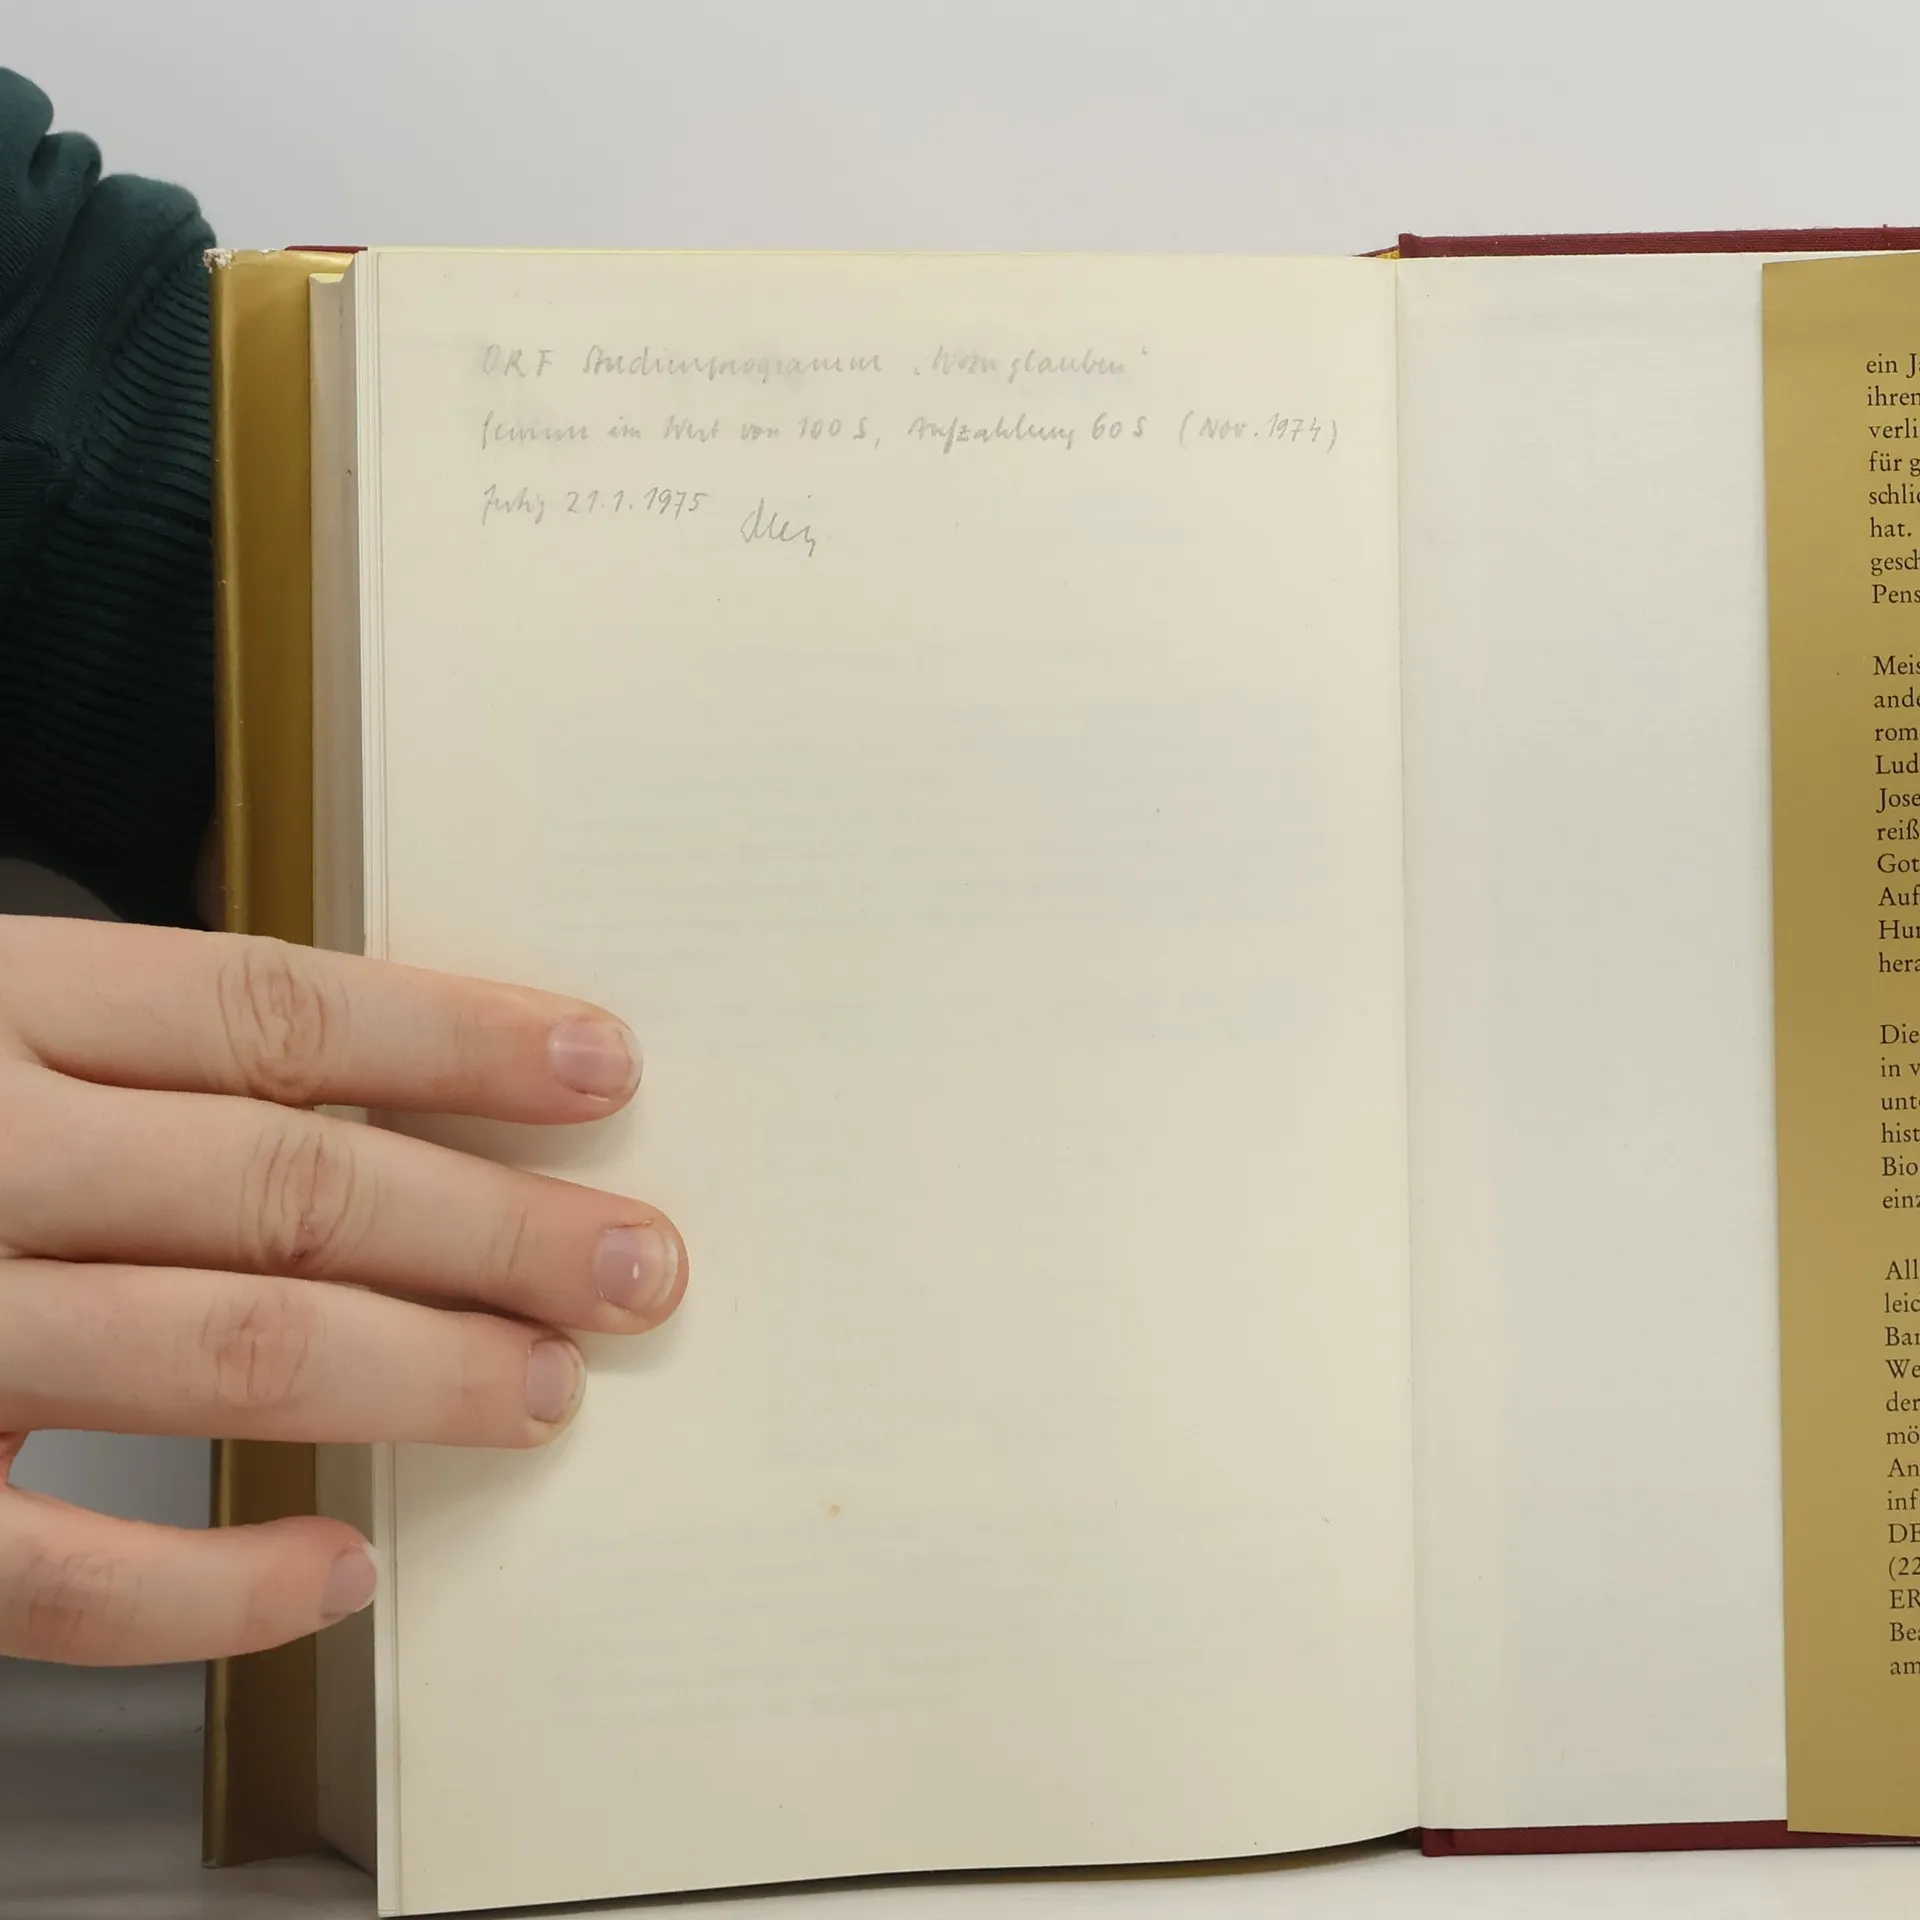 ORF Studienprogramm „Wozu glauben"
Gewinn im Wert von 100 S, Aufzahlung 60 S (Nov. 1974)
21.1.1975
ein
ihren
verli
für g
schlic
hat.
gesch
Pens
Meis
ande
rom
Lud
Jose
reiß
Got
Auf
Hu
hera
Die
in v
unte
hist
Bio
einz
All
leic
Ba
We
der
mö
An
inf
DE
(22
ER
Bea
am